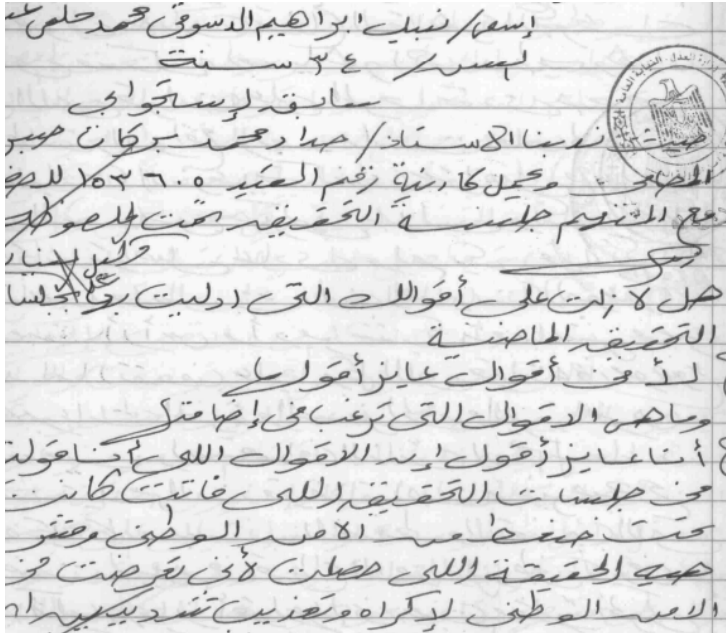 إسمى / نبيل ابراهيم الدسوقى محمد حلمى
السن / ٣٤ سنة
سابقه لإستجوابى
حيث ندبنا الاستاذ / محمد بركات
المحامى ويحمل كارنية رقم القيد ٥٣٦٠٥
مع المتهم جلسة التحقيقه تمت
وكيل النيابة
هل لازلت على أقوالك التى ادليت بجلسات
التحقيقه الماضية
لأ فى أقوال عايز أقولها
وما هى الاقوال التى ترغب فى إضافتها
أنا عايز أقول إن الاقوال اللى أنا قولتها
فى جلسات التحقيقه اللى فاتت كانت
تحت ضغط من الامن الوطنى ومش
هيه الحقيقة اللى حصلت لأنى تعرضت من
الامن الوطنى لإكراه وتعذيب شديد